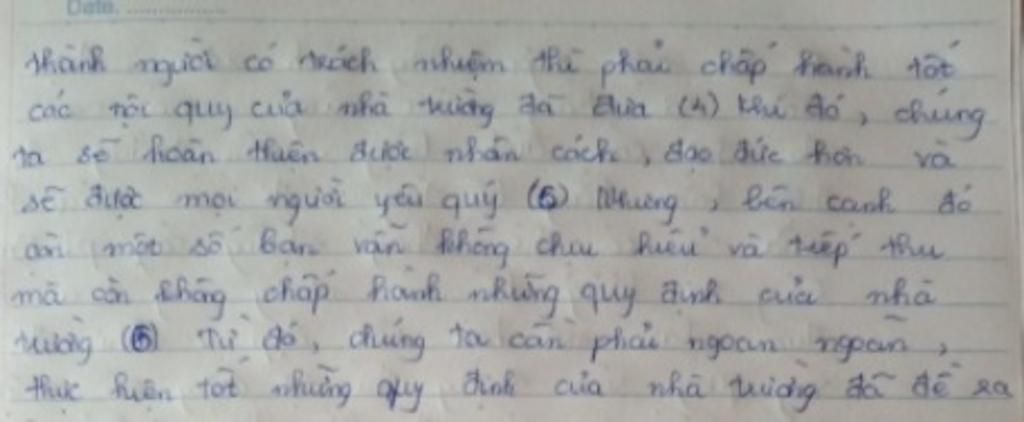 Date. ................
thành người có trách nhiệm thì phải chấp hành tốt
các nội quy của nhà trường đã đưa (4) Khi đó, chúng
ta sẽ hoàn thiện được nhân cách, đạo đức hơn và
sẽ được mọi người yêu quý (5) Nhưng, bên cạnh đó
còn một số bạn vẫn không chịu hiểu và tiếp thu
mà còn không chấp hành những quy định của nhà
trường (6) Từ đó, chúng ta cần phải ngoan ngoãn,
thực hiện tốt những quy định của nhà trường đã đề ra